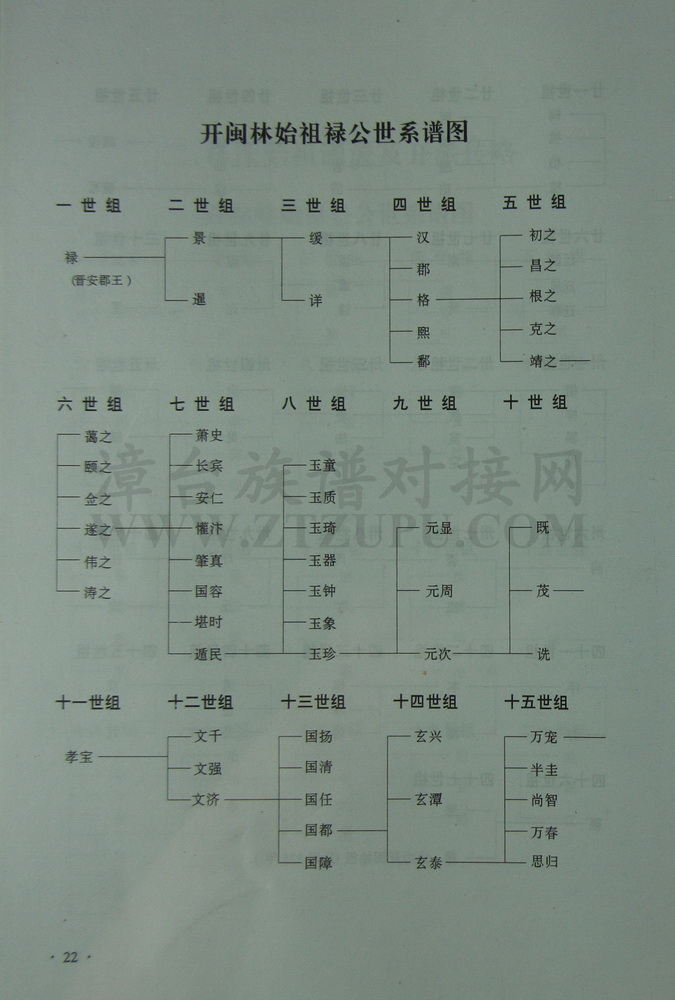 开闽林始祖禄公世系谱图
一世组 二世组 三世组 四世组 五世组
景 缓 汉 初之
禄
(晋安郡王) 郡 昌之
暹 详 格 根之
熙 克之
鄱 靖之
六世组 七世组 八世组 九世组 十世组
蔼之 萧史
颐之 长宾 玉童
金之 安仁 玉质
遂之 懽汴 玉琦 元显 既
伟之 肇真 玉器
涛之 国容 玉钟 元周 茂
堪时 玉象
遁民 玉珍 元次 诜
十一世组 十二世组 十三世组 十四世组 十五世组
文千 国扬 玄兴 万宠
孝宝
文强 国清 半圭
文济 国任 玄潭 尚智
国都 万春
国障 玄泰 思归
漳台族谱对接网
WWW.ZTZUPU.COM
· 22 ·